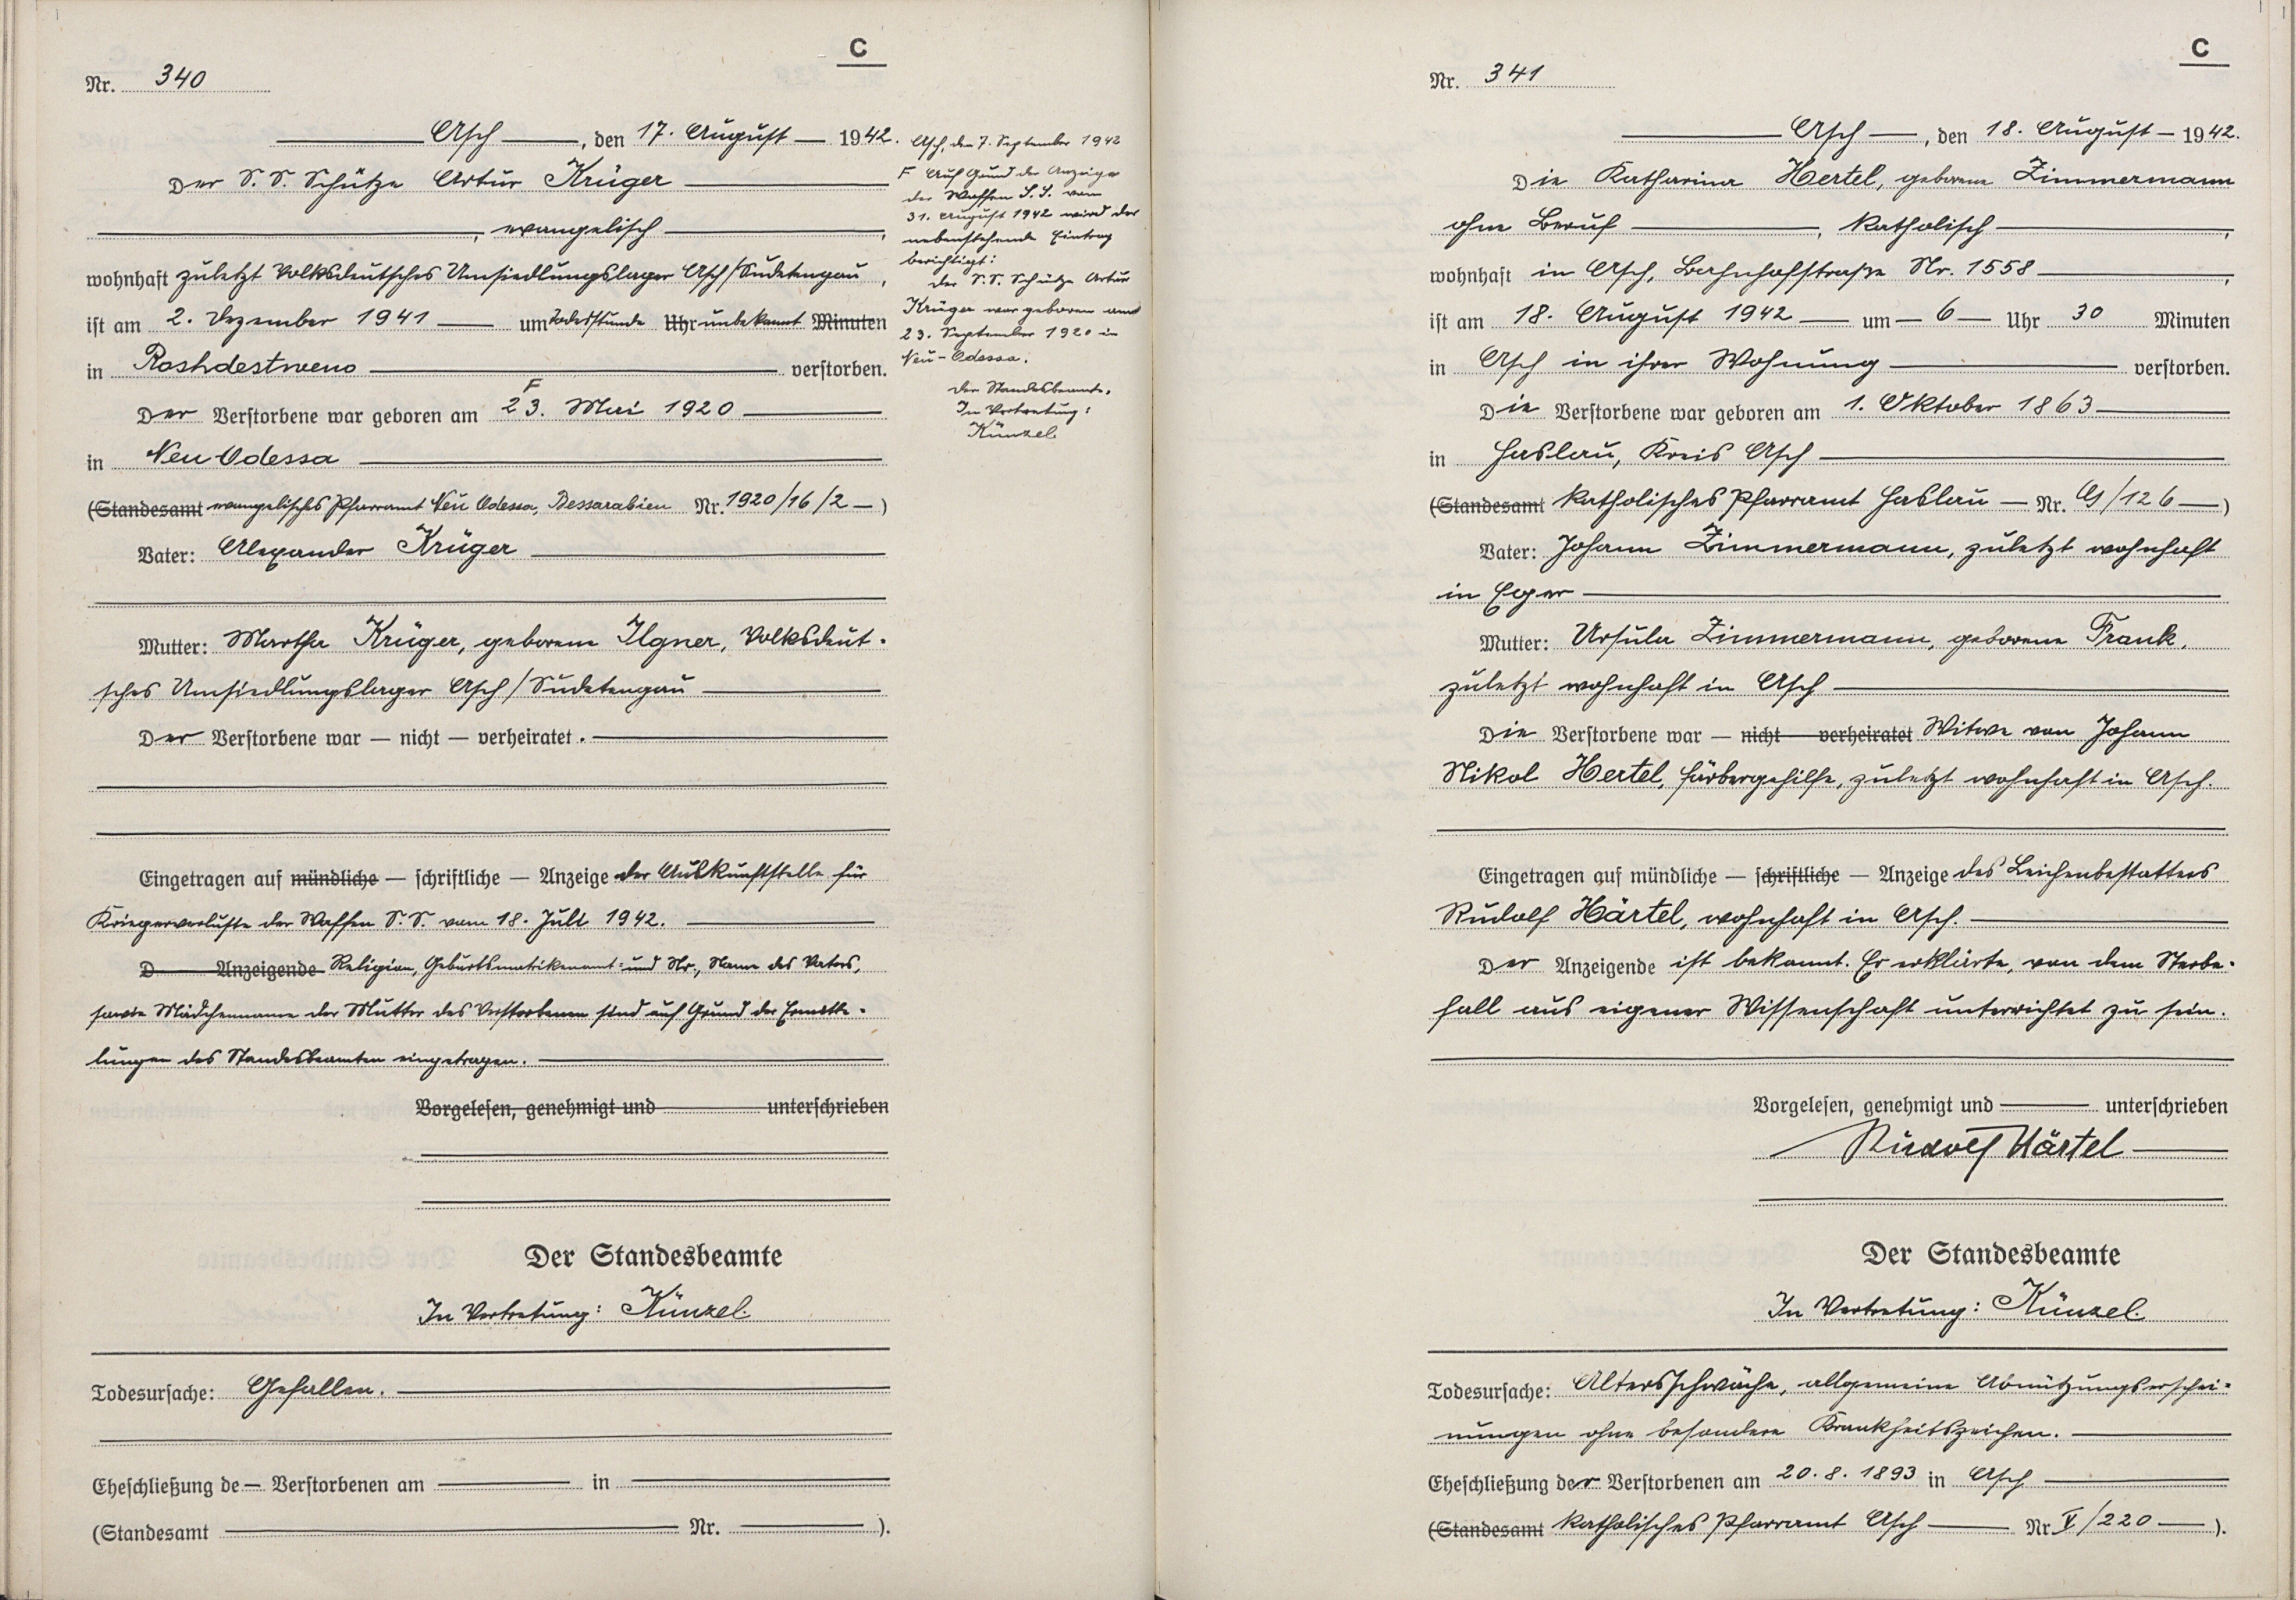 C
Nr. 340
Asch, den 17. August 1942.
Der S.S. Schütze Artur Krüger
, evangelisch,
wohnhaft zuletzt Volksdeutsches Umsiedlungslager Asch/Sudetengau,
ist am 2. Dezember 1941 um Todesstunde Uhr unbekannt Minuten
in Roshdestweno verstorben.
F
Der Verstorbene war geboren am 23. Mai 1920
in Neu-Odessa
(Standesamt evangelisches Pfarramt Neu Odessa, Bessarabien Nr. 1920/16/2)
Vater: Alexander Krüger
Mutter: Martha Krüger, geborene Ilgner, Volksdeut-
sches Umsiedlungslager Asch/Sudetengau
Der Verstorbene war — nicht — verheiratet.
Eingetragen auf mündliche — schriftliche — Anzeige der Auskunftstelle für
Kriegerverluste der Waffen S.S. vom 18. Juli 1942.
D Anzeigende Religion, Geburtsmatrikenamt und Nr., Name des Vaters,
sowie Mädchenname der Mutter des Verstorbenen sind auf Grund der Ermitte-
lungen des Standesbeamten eingetragen.
Vorgelesen, genehmigt und unterschrieben
Der Standesbeamte
In Vertretung: Künzel.
Todesursache: Gefallen.
Eheschließung de— Verstorbenen am in
(Standesamt Nr. ).
Asch, den 7. September 1942
F Auf Grund der Anzeige
der Waffen S.S. vom
31. August 1942 wird der
nebenstehende Eintrag
berichtigt:
Der S.S. Schütze Artur
Krüger war geboren am
23. September 1920 in
Neu-Odessa.
Der Standesbeamte.
In Vertretung:
Künzel.
C
Nr. 341
Asch, den 18. August 1942.
Die Katharina Hertel, geborene Zimmermann
ohne Beruf, katholisch,
wohnhaft in Asch, Bahnhofstraße Nr. 1558,
ist am 18. August 1942 um 6 Uhr 30 Minuten
in Asch in ihrer Wohnung verstorben.
Die Verstorbene war geboren am 1. Oktober 1863
in Haslau, Kreis Asch
(Standesamt katholisches Pfarramt Haslau Nr. G/126)
Vater: Johann Zimmermann, zuletzt wohnhaft
in Eger
Mutter: Ursula Zimmermann, geborene Frank,
zuletzt wohnhaft in Asch
Die Verstorbene war — nicht verheiratet Witwe von Johann
Nikol Hertel, Färbergehilfe, zuletzt wohnhaft in Asch.
Eingetragen auf mündliche — schriftliche — Anzeige des Leichenbestatters
Rudolf Härtel, wohnhaft in Asch.
Der Anzeigende ist bekannt. Er erklärte, von dem Sterbe-
fall aus eigener Wissenschaft unterrichtet zu sein.
Vorgelesen, genehmigt und unterschrieben
Rudolf Härtel
Der Standesbeamte
In Vertretung: Künzel.
Todesursache: Altersschwäche, allgemeine Abnützungserschei-
nungen ohne besondere Krankheitszeichen.
Eheschließung der Verstorbenen am 20.8.1893 in Asch
(Standesamt katholisches Pfarramt Asch Nr. V/220).